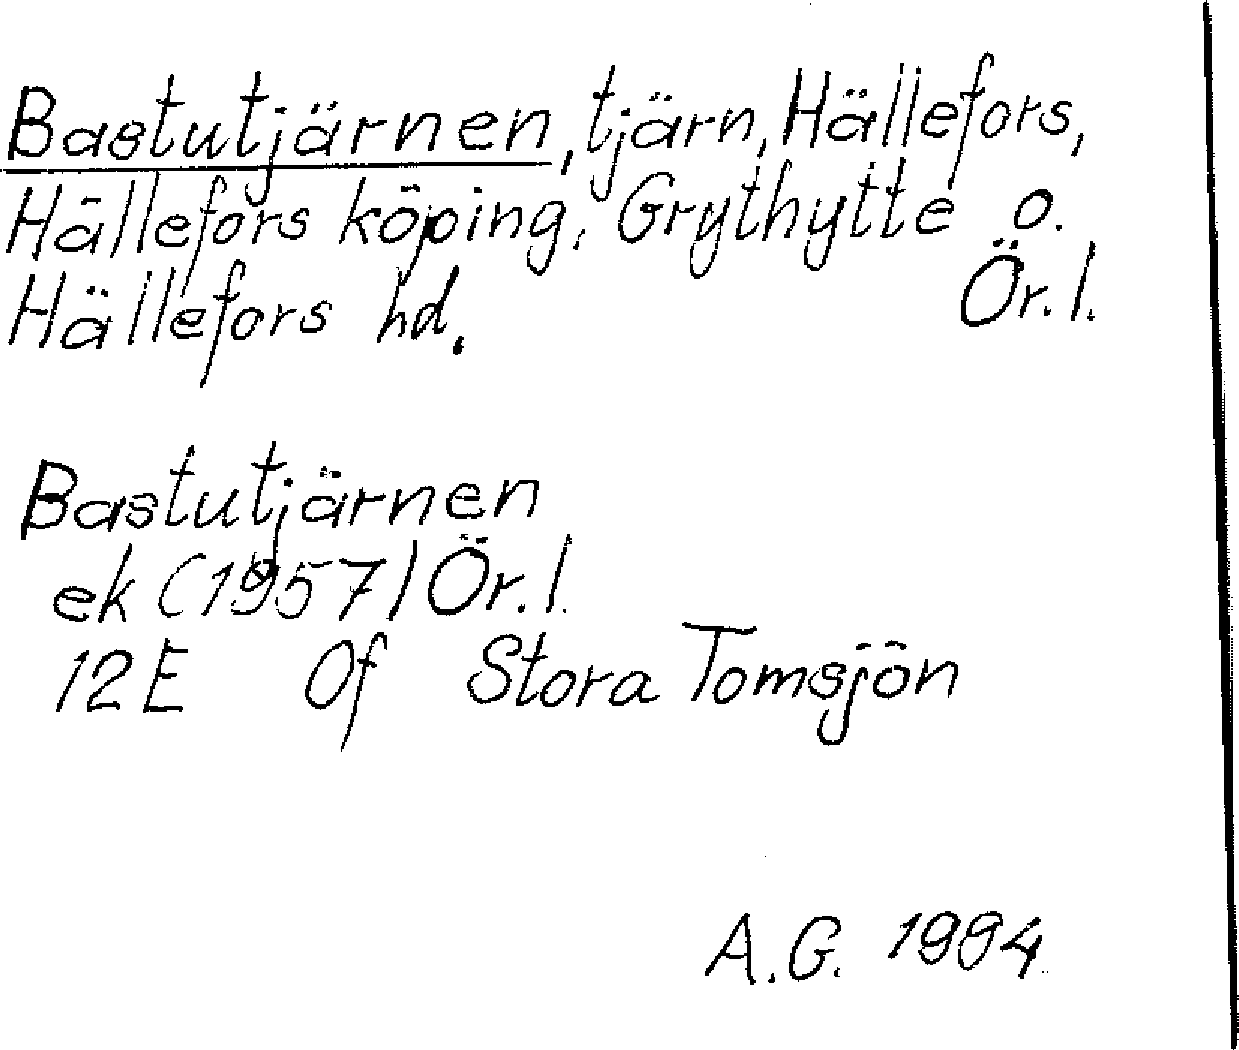 Bastutjärnen, tjärn, Hällefors,
Hällefors köping, Grythytte o.
Hällefors hd. Ör.l.
Bastutjärnen
ek (1957) Ör.l.
12E 0f Stora Tomsjön
A.G. 1994